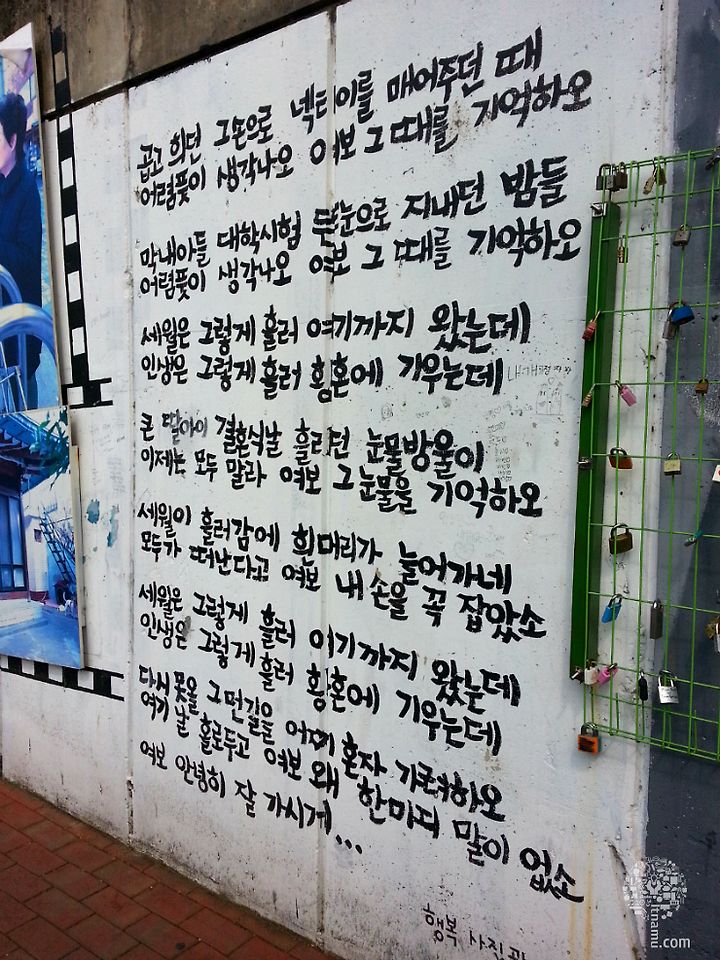 곱고 희던 그손으로 넥타이를 매어주던 때
어렴풋이 생각나오 여보 그때를 기억하오
막내아들 대학시험 뜬눈으로 지내던 밤들
어렴풋이 생각나오 여보 그때를 기억하오
세월은 그렇게 흘러 여기까지 왔는데
인생은 그렇게 흘러 황혼에 기우는데
큰 딸아이 결혼식날 흘리던 눈물방울이
이제는 모두 말라 여보 그눈물을 기억하오
세월이 흘러감에 흰머리가 늘어가네
모두가 떠난다고 여보 내 손을 꼭 잡았소
세월은 그렇게 흘러 여기까지 왔는데
인생은 그렇게 흘러 황혼에 기우는데
다시못올 그먼길을 어찌 혼자 가려하오
여기 날 홀로두고 여보 왜 한마디 말이 없소
여보 안녕히 잘 가시게...
행복 사진관
itnamu.com